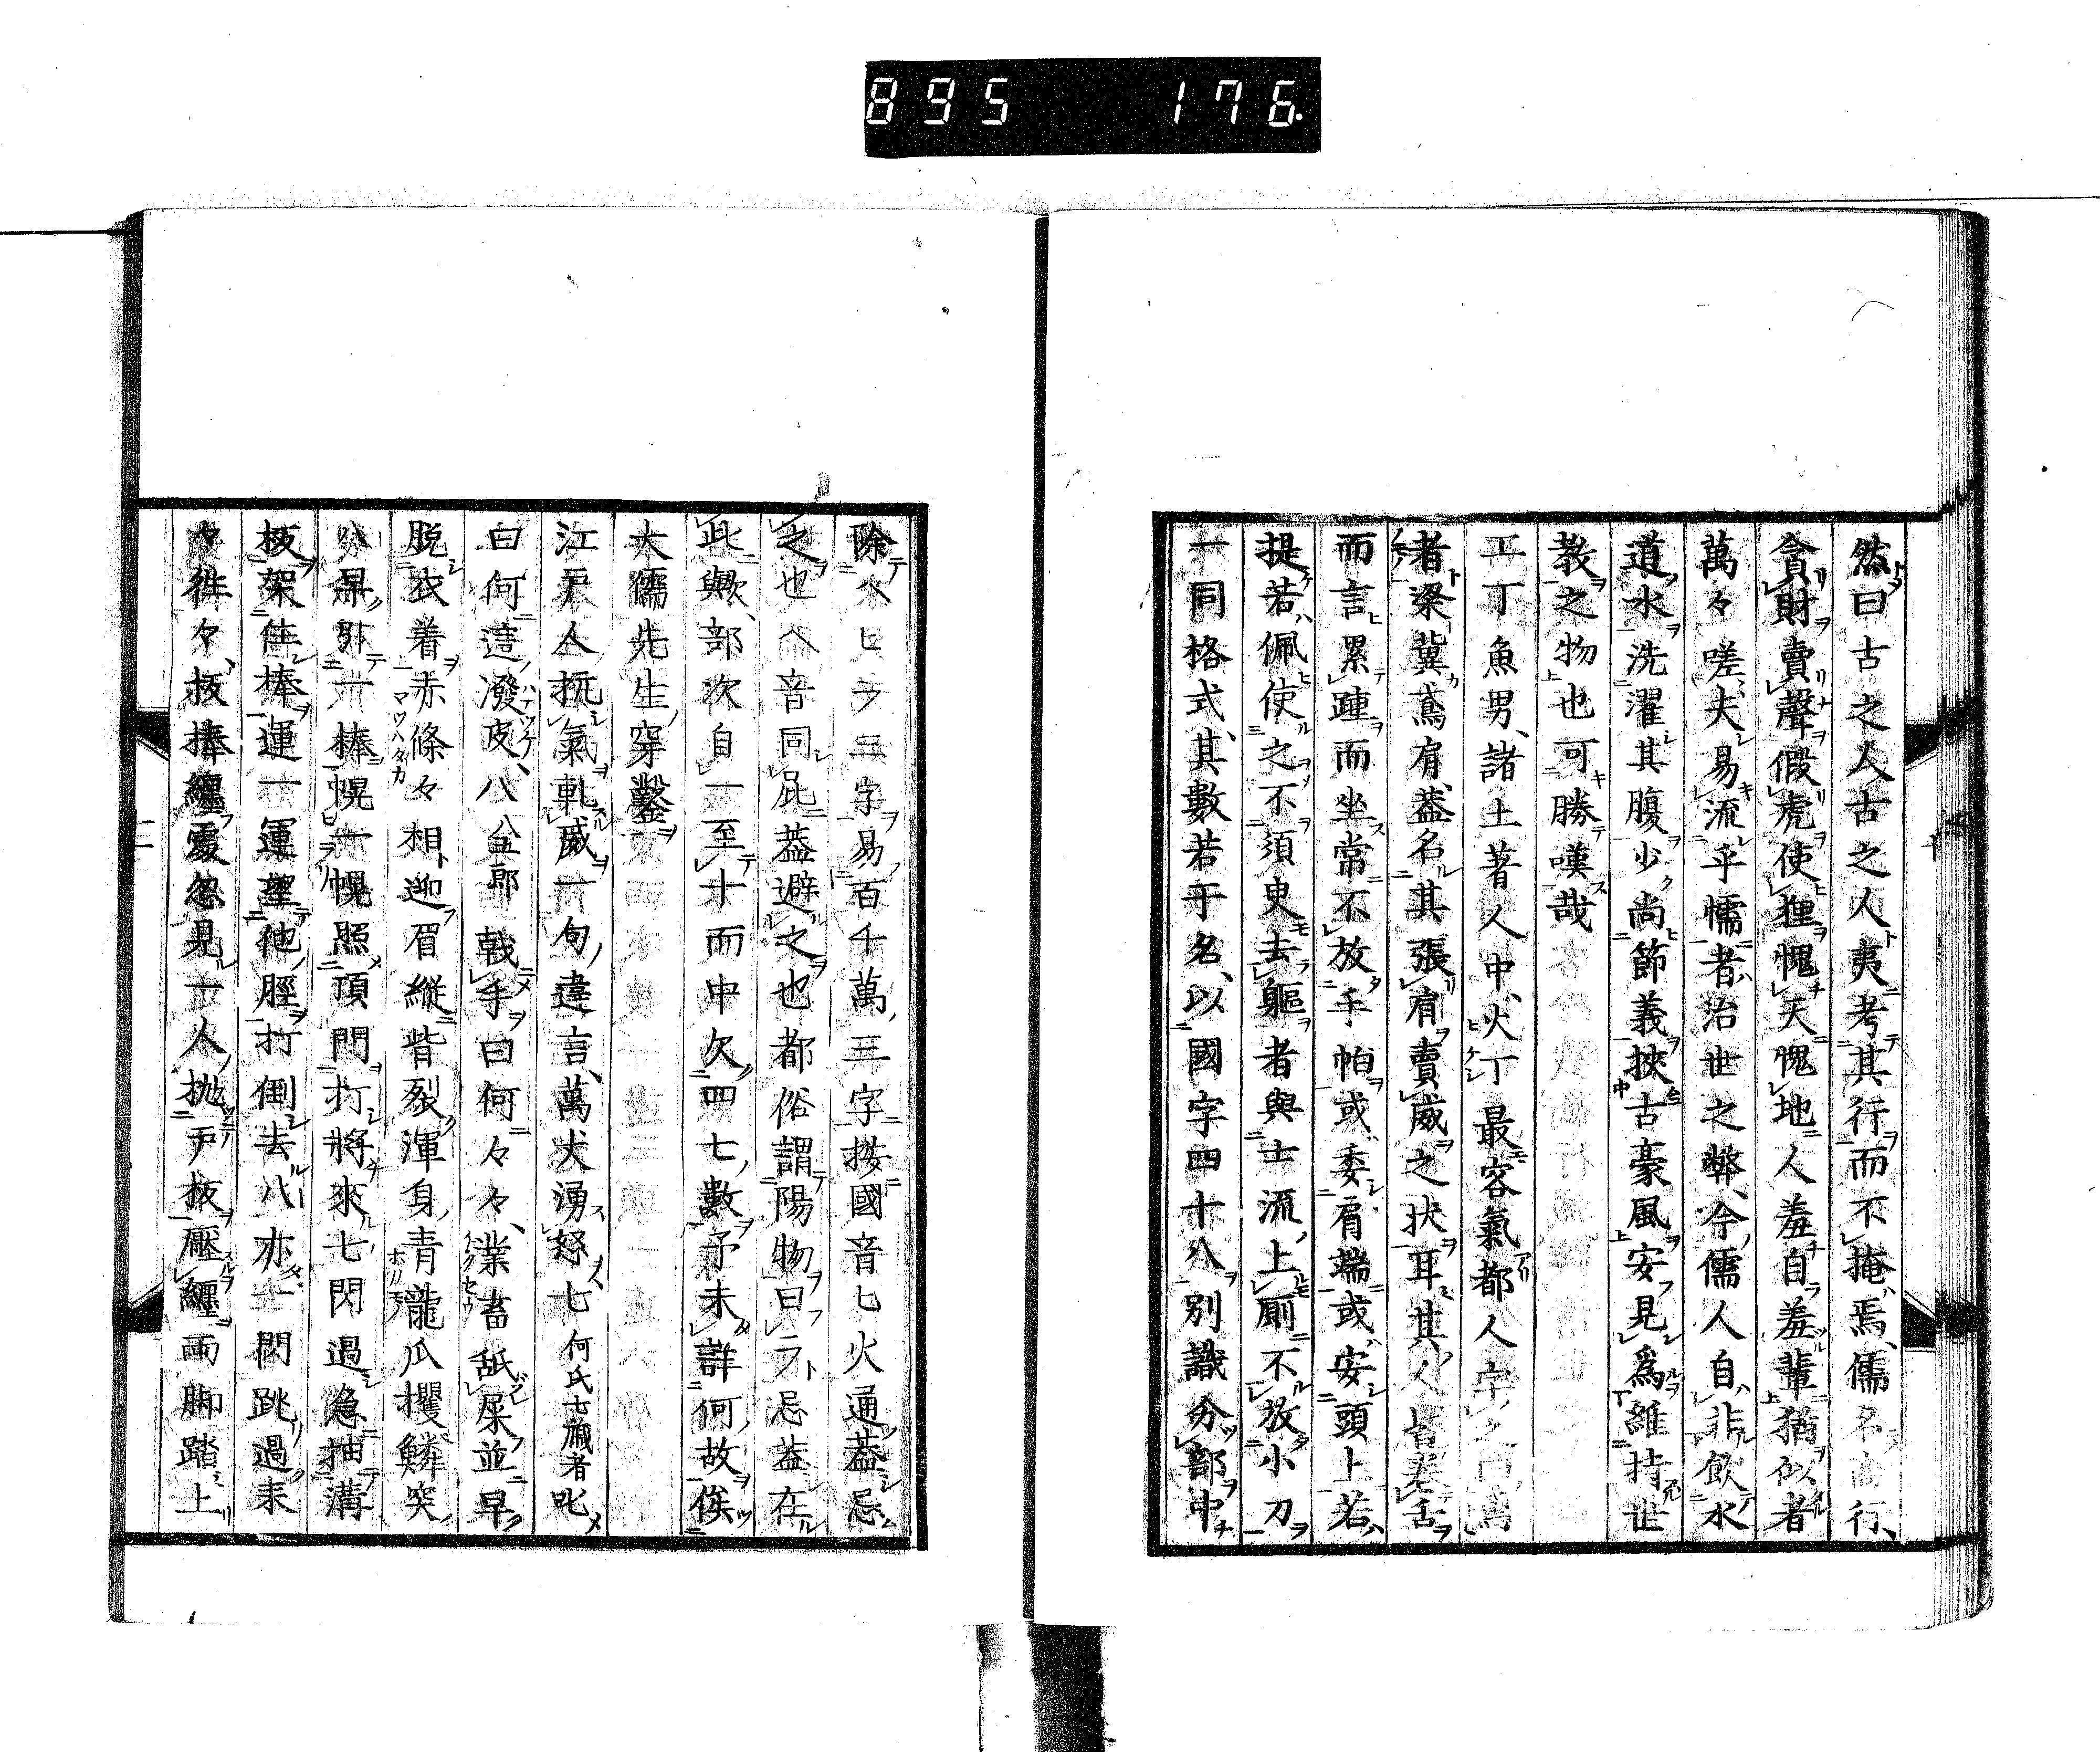 895 176
然曰古之人古之人夷考其行而不掩焉、儒名行、
貪財賣聲假虎使狸愧天愧地人羞自羞輩猶似者
萬々嗟、夫易流乎懦者治世之弊、今儒人自非飲水
道水洗濯其腹少尚節義挾古豪風安見爲維持世
教之物也可勝嘆哉
工丁魚男、諸土著人中、火丁最容氣都人字之
者梁冀鳶肩、蓋名其張肩賣威之狀耳其人皆卷舌
而言累踵而坐常不放手帕或委肩端或安頭上若
提若佩使之不須臾去軀者與士流上厠不放小刀
一同格式、其數若干名、以國字四十八別識分部中
除ヘヒラ三字易百千萬三字按國音匕火通蓋忌
之也ヘ音同屁蓋避之也都俗謂陽物曰ラ忌蓋在
此歟、部次自一至十而中欠四七數予未詳何故俟
大儒先生穿鑿
江戸人抚氣軋威一句違言、萬犬湧怒七何氏士藏者叱
曰何這潑皮、八八五郎戟手曰何々々、業畜舐屎並早
脱衣着赤條々相迎眉縱眥裂渾身青龍瓜攫鱗突
八早引一棒幌一幌照頂門打將來七閃過急抽溝
板架住棒運一運望他脛打倒去八亦一閃跳過来
々徃々、板捧纏處忽見一人抛戸板壓纏両脚踏上
二